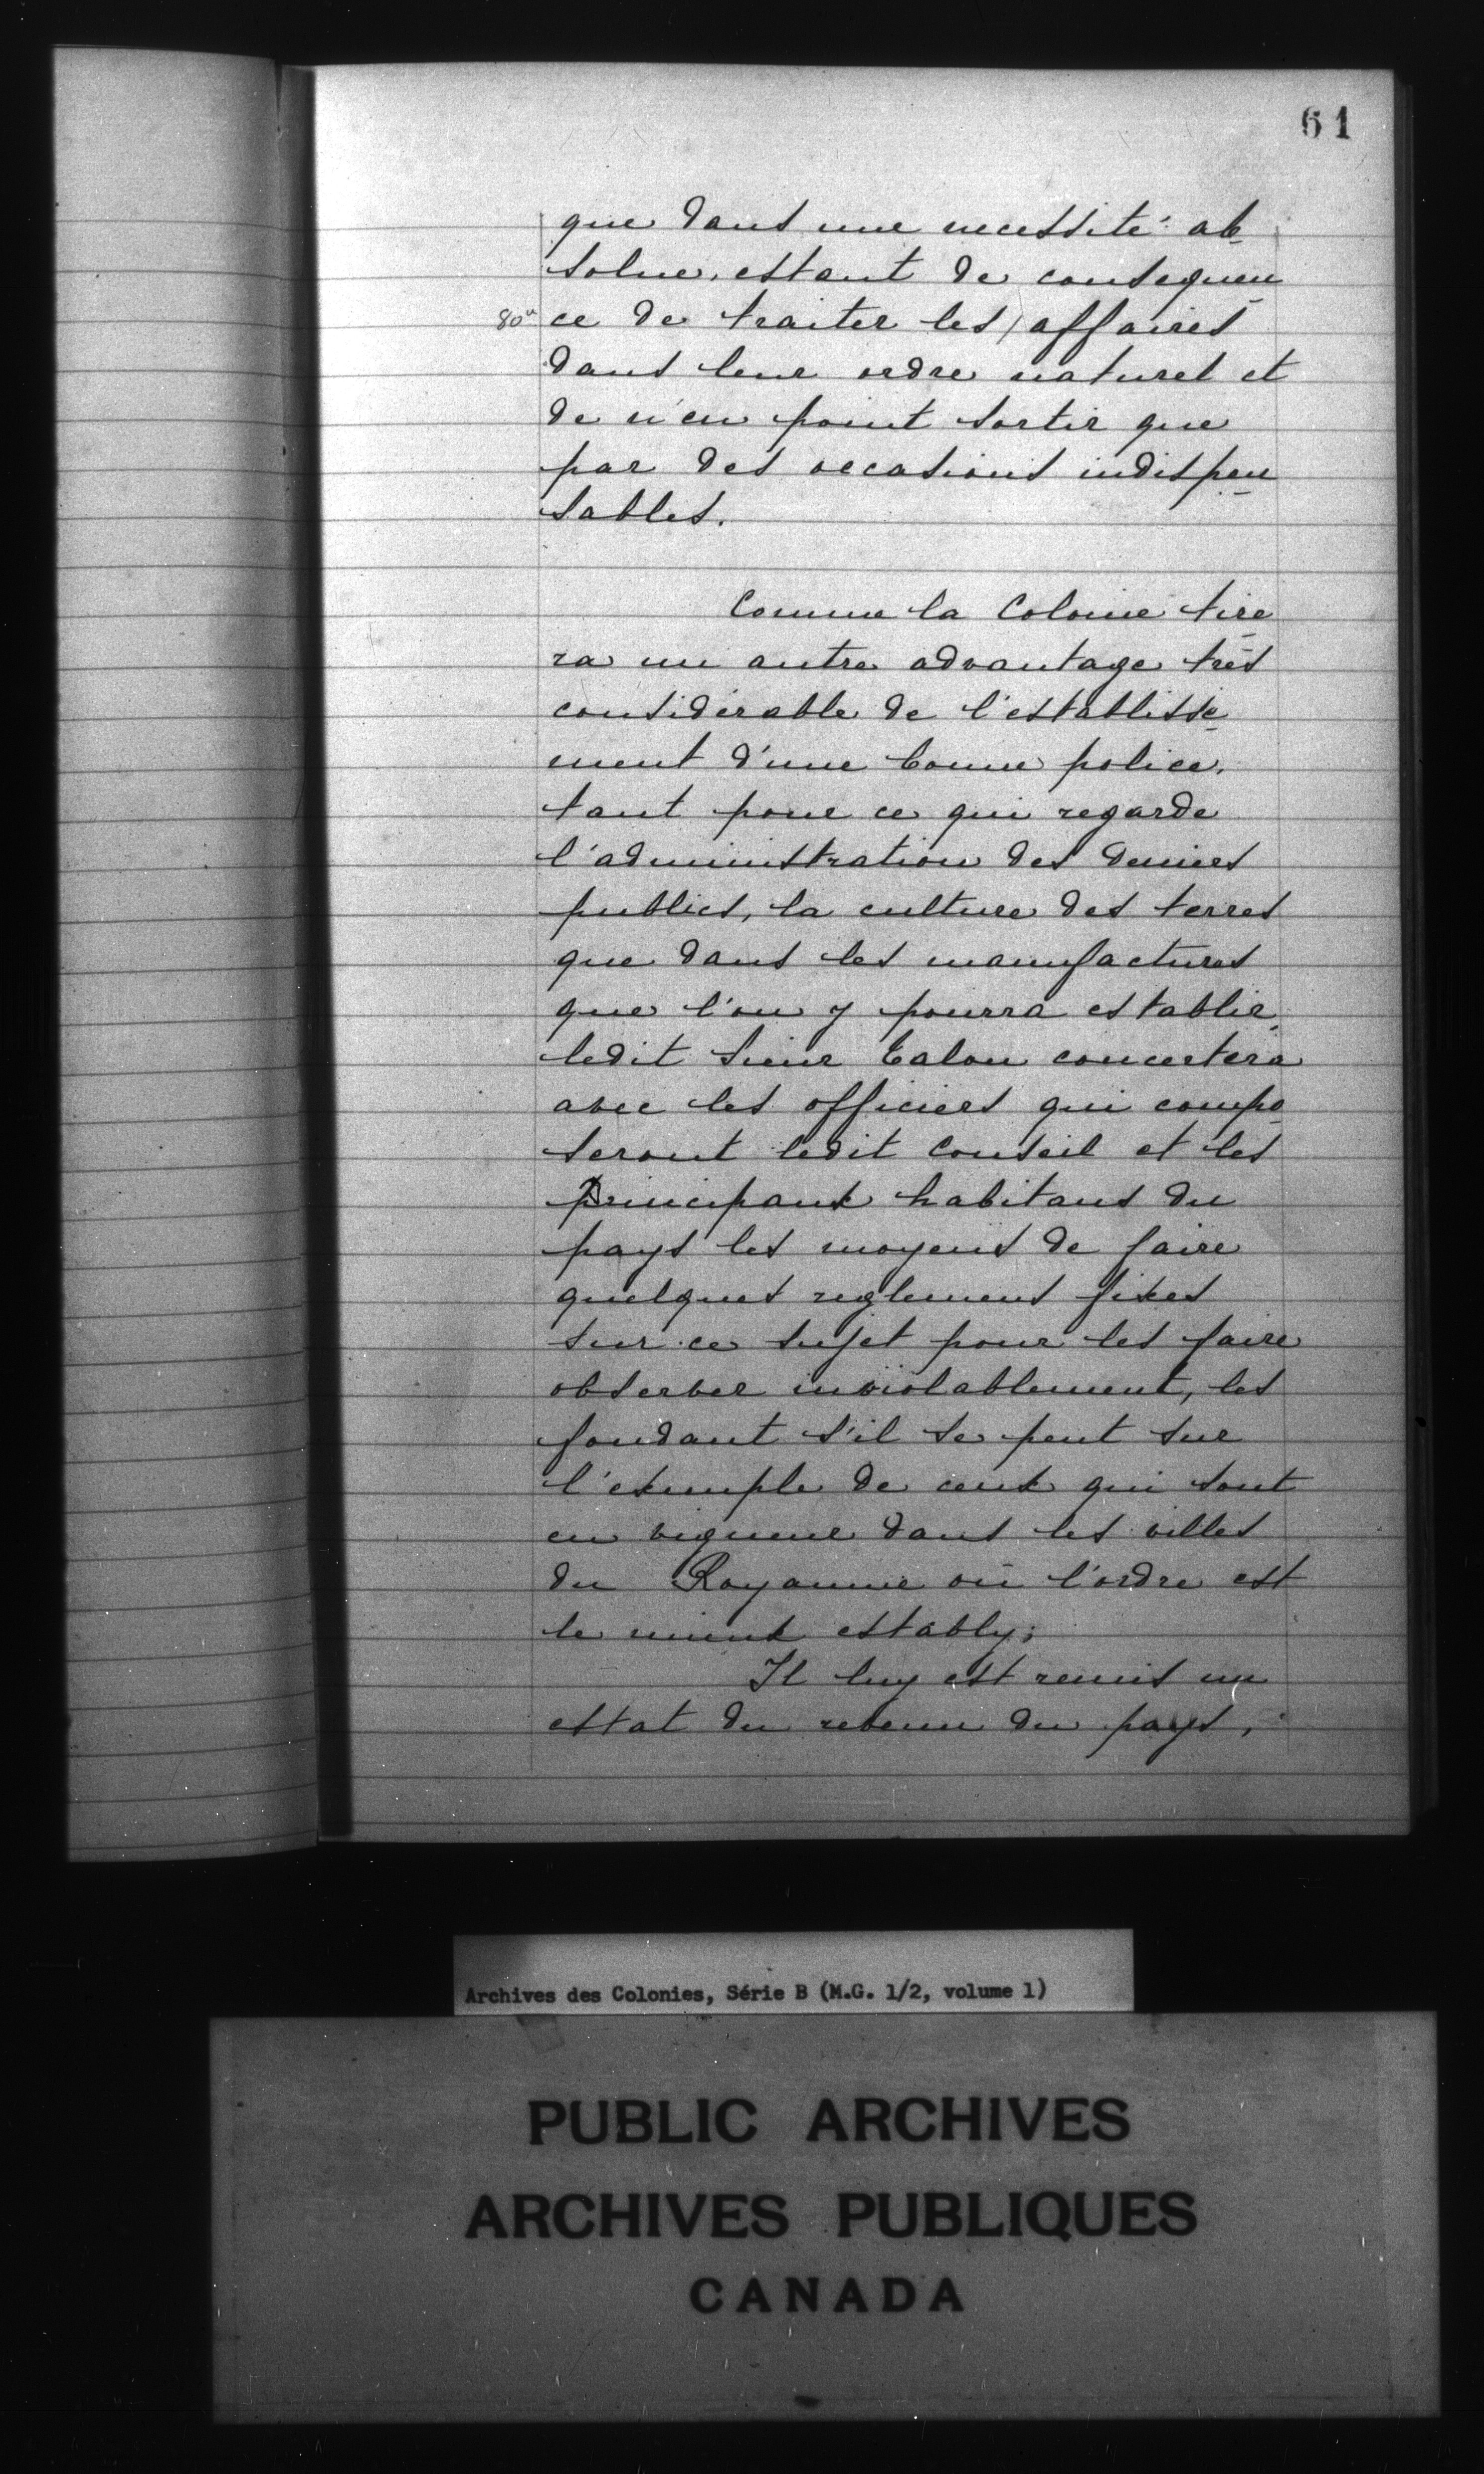 61
que dans une necessité ab
solue, estant de consequen
80v ce de traiter les / affaires
dans leur ordre naturel et
de n'en point sortir que
par des occasions indispen
sables.
Comme la Colonie tire
ra un autre advantage très
considérable de l'establisse
ment d'une bonne police,
tant pour ce qui regarde
l'administration des deniers
publics, la culture des terres
que dans les manufactures
que l'on y pourra establir,
ledit Sieur Talon concertera
avec les officiers qui compo
seront ledit Conseil et les
principaux habitans du
pays les moyens de faire
quelques reglemens fixes
sur ce sujet pour les faire
observer inviolablement, les
fondant s'il se peut sur
l'exemple de ceux qui sont
en vigueur dans les villes
du Royaume où l'ordre est
le mieux estably;
Il luy est remis un
estat du revenu du pays,
Archives des Colonies, Série B (M.G. 1/2, volume 1)
PUBLIC ARCHIVES
ARCHIVES PUBLIQUES
CANADA